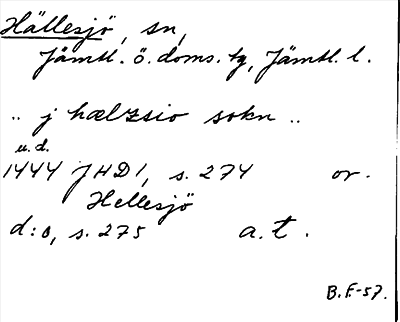 Hällesjö, sn,
Jämtl. ö. doms. tg, Jämtl. l.
.. j hælzsio sokn ..
u.d.
1444 JHD1, s. 274 or.
Hellesjö
d:o, s. 275 a.t.
B.F.-57.